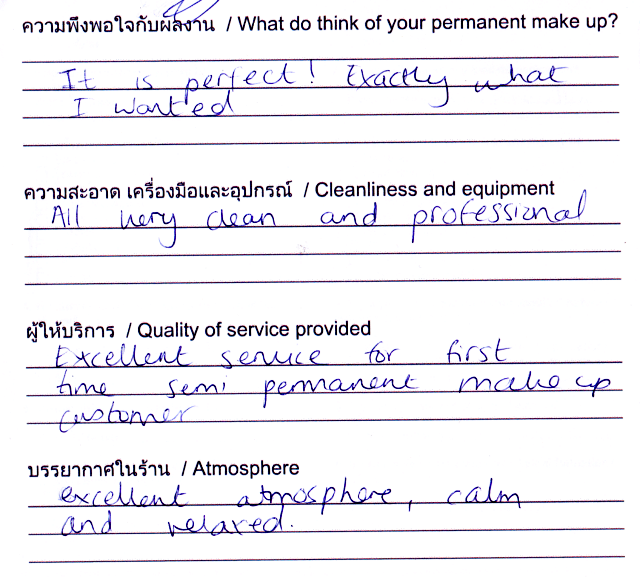 ความพึงพอใจกับผลงาน / What do think of your permanent make up?
It is perfect! Exactly what
I wanted
ความสะอาด เครื่องมือและอุปกรณ์ / Cleanliness and equipment
All very clean and professional
ผู้ให้บริการ / Quality of service provided
Excellent service for first
time semi permanent make up
customer
บรรยากาศในร้าน / Atmosphere
excellent atmosphere, calm
and relaxed.